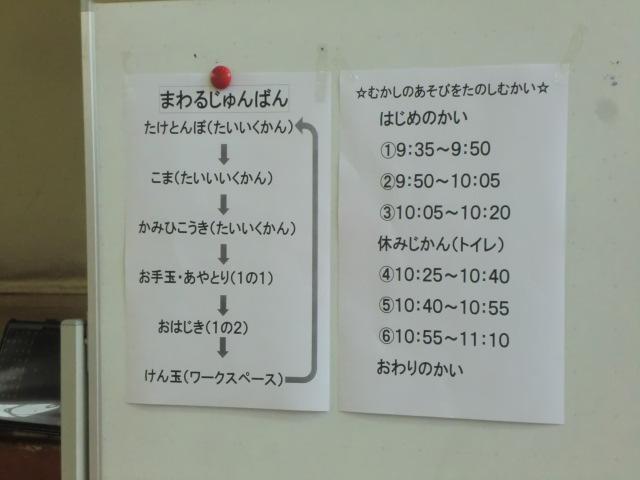 まわるじゅんばん
たけとんぼ(たいいくかん)
こま(たいいいくかん)
かみひこうき(たいいくかん)
お手玉・あやとり(1の1)
おはじき(1の2)
けん玉(ワークスペース)
☆むかしのあそびをたのしむかい☆
はじめのかい
①9:35～9:50
②9:50～10:05
③10:05～10:20
休みじかん(トイレ)
④10:25～10:40
⑤10:40～10:55
⑥10:55～11:10
おわりのかい